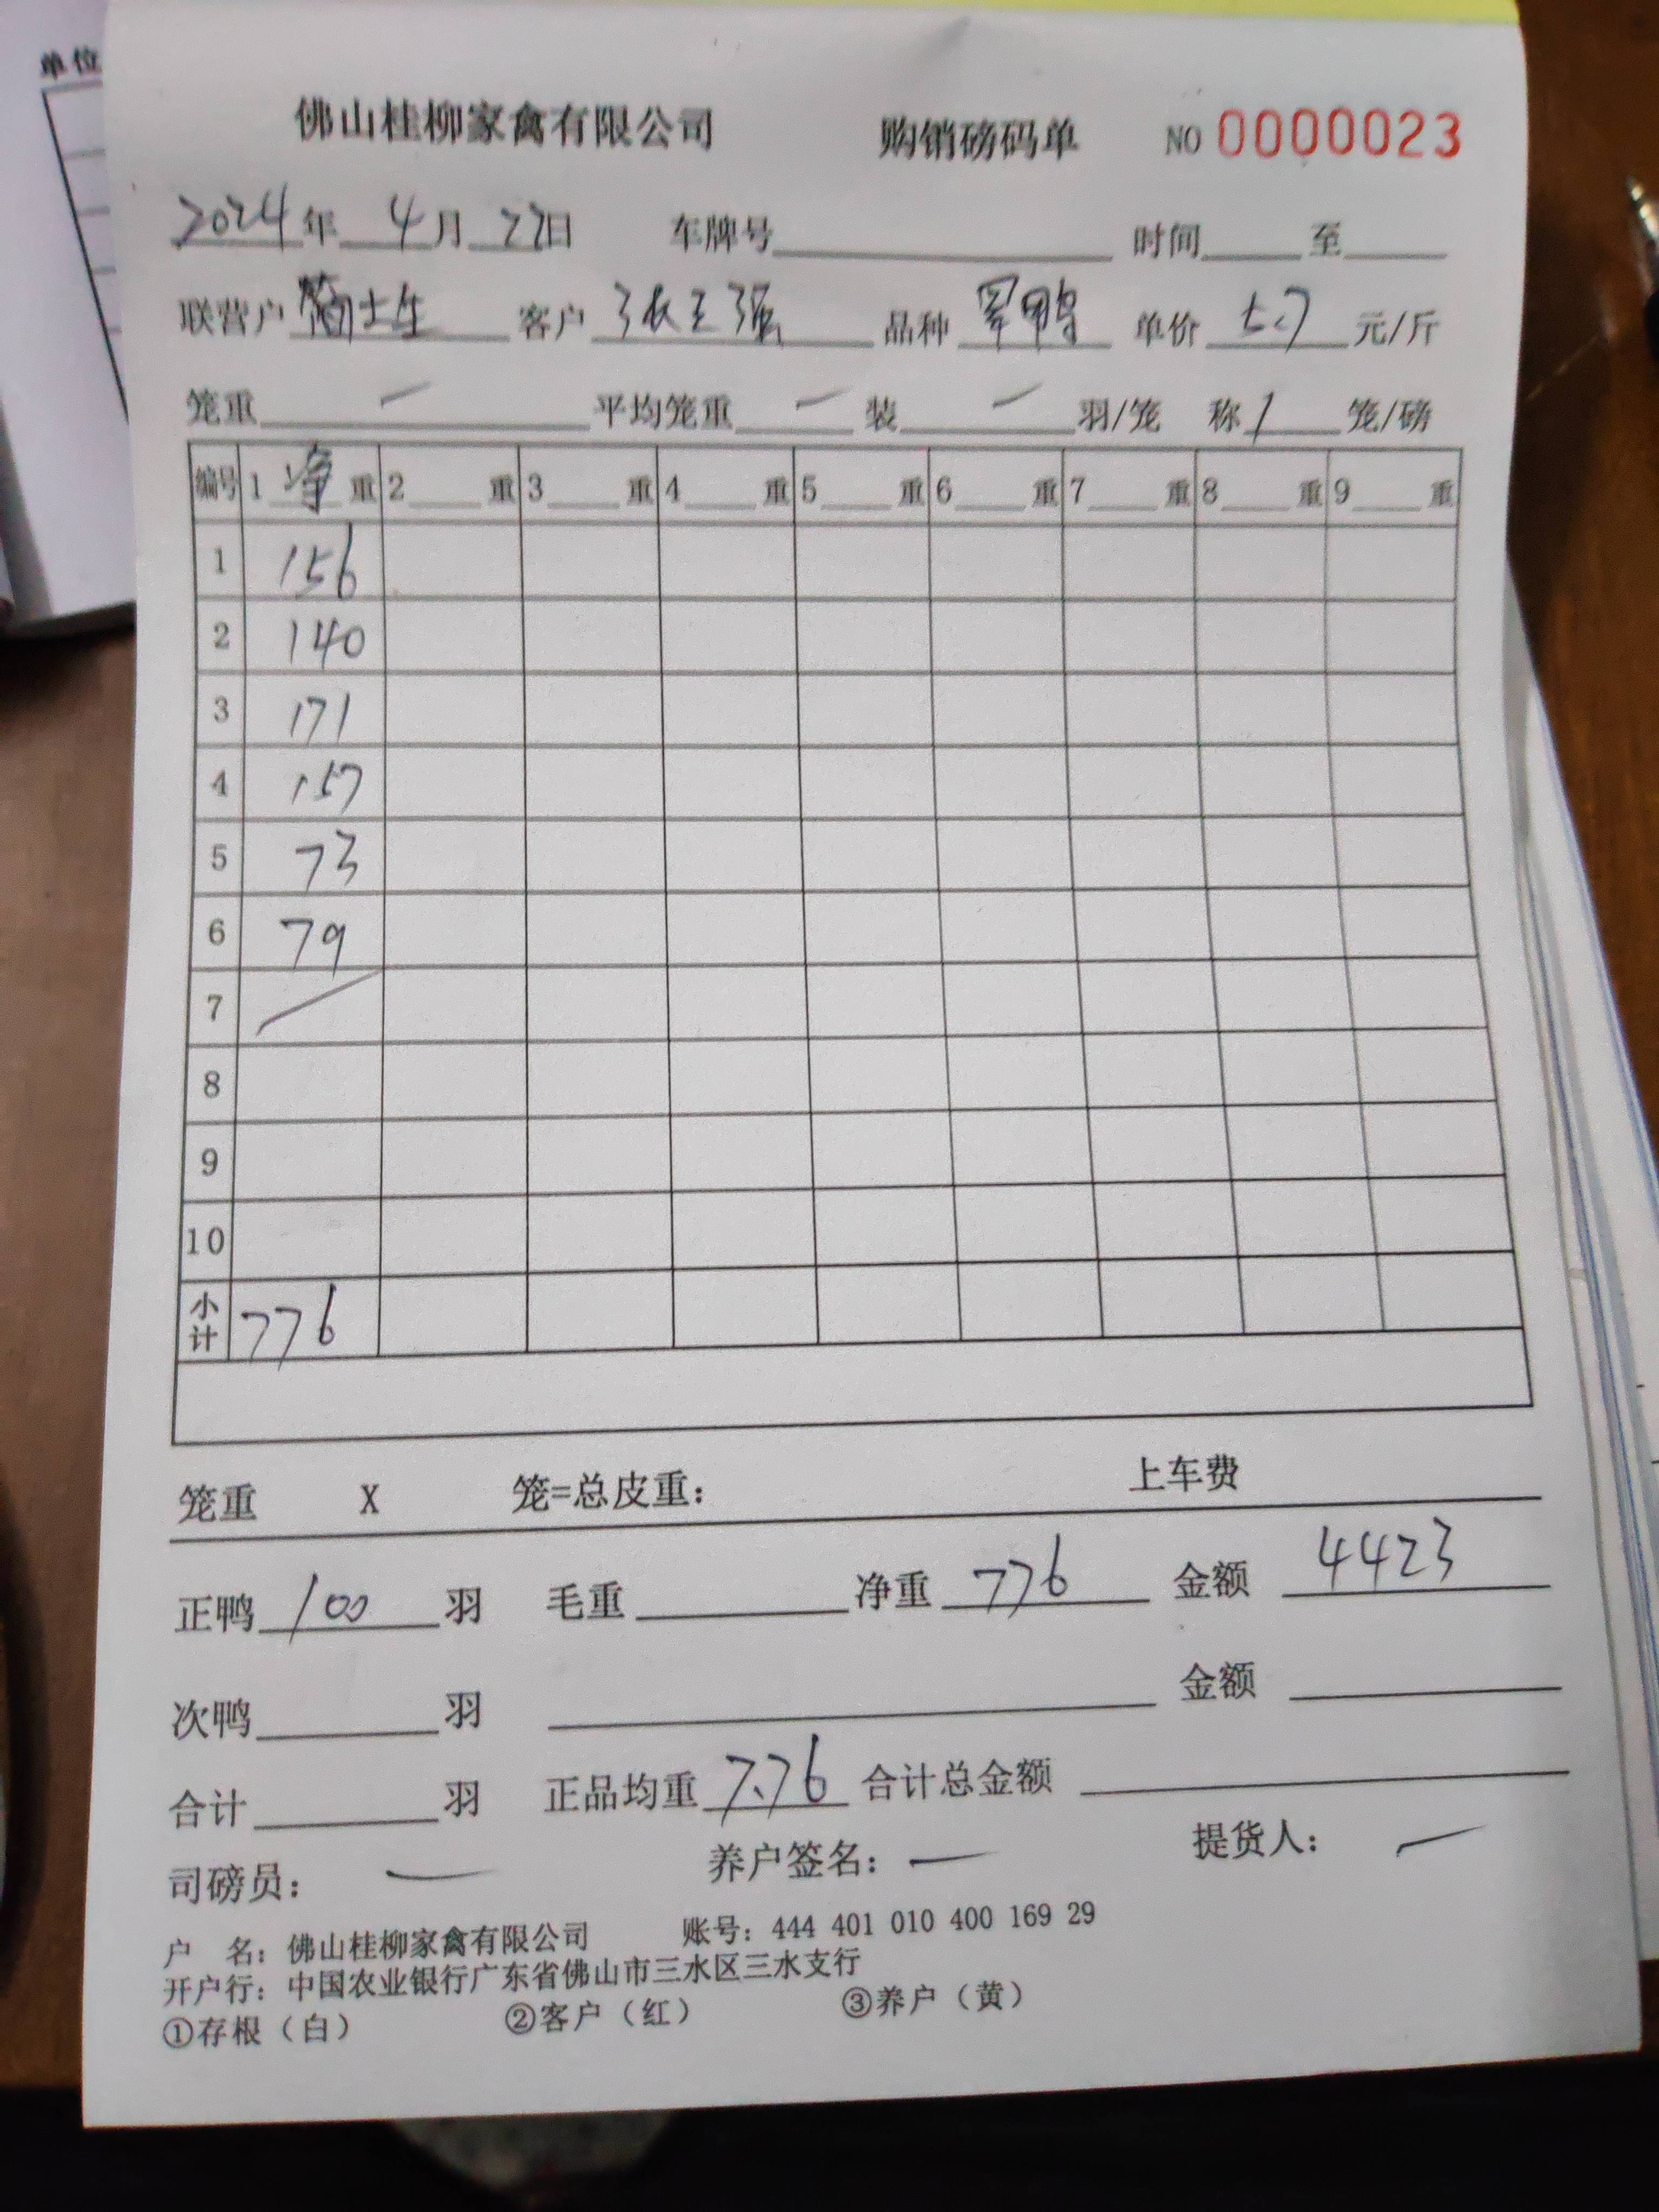 单位
佛山桂柳家禽有限公司 购销磅码单 NO 0000023
2024年 4月 27日 车牌号 时间 至
联营户 简士生 客户 张玉强 品种 鸭 单价 5.7 元/斤
笼重 一 平均笼重 一 装 一 羽/笼 称 1 笼/磅
编号 1 净 重 2 重 3 重 4 重 5 重 6 重 7 重 8 重 9 重
1 156
2 140
3 171
4 157
5 73
6 79
7
8
9
10
小计 776
笼重 X 笼=总皮重: 上车费
正鸭 100 羽 毛重 净重 776 金额 4423
次鸭 羽 金额
合计 羽 正品均重 7.76 合计总金额
司磅员: 一 养户签名: 一 提货人: 一
户 名: 佛山桂柳家禽有限公司 账号: 444 401 010 400 169 29
开户行: 中国农业银行广东省佛山市三水区三水支行
①存根（白） ②客户（红） ③养户（黄）